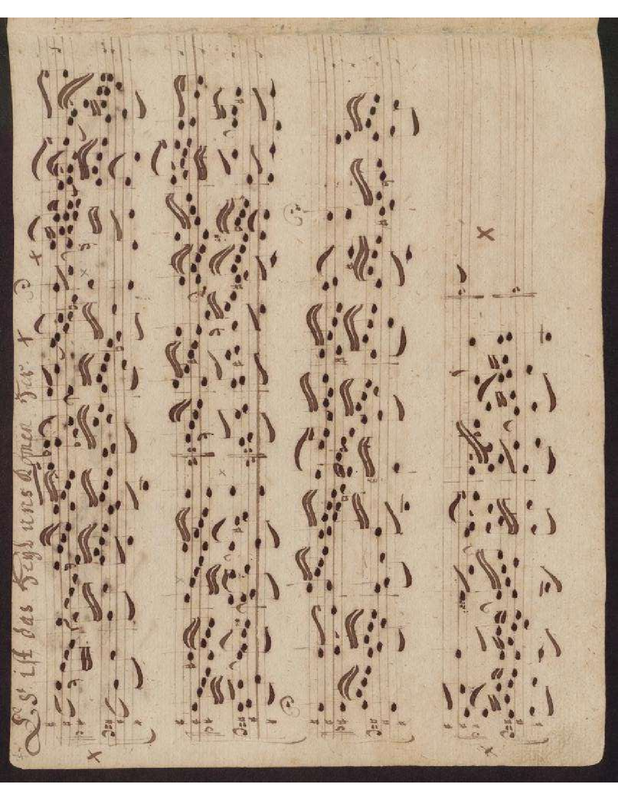 Es ist das Heyl uns kom̅en her